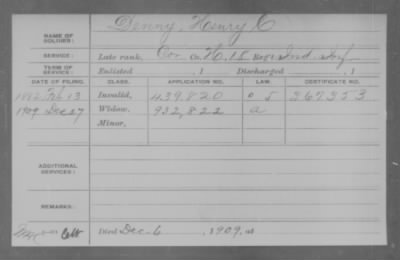 NAME OF SOLDIER: Denny, Henry C
SERVICE: Late rank, Cor. Co. H. 18 Reg't Ind. Inf
TERM OF SERVICE: Enlisted , 1 Discharged , 1
DATE OF FILING. CLASS. APPLICATION NO. LAW. CERTIFICATE NO.
1882 Feb 13 Invalid, 439,820 5 267353
1909 Dec 27 Widow, 932,822 a
Minor,
ADDITIONAL SERVICES:
REMARKS:
Died Dec-6, 1909, at